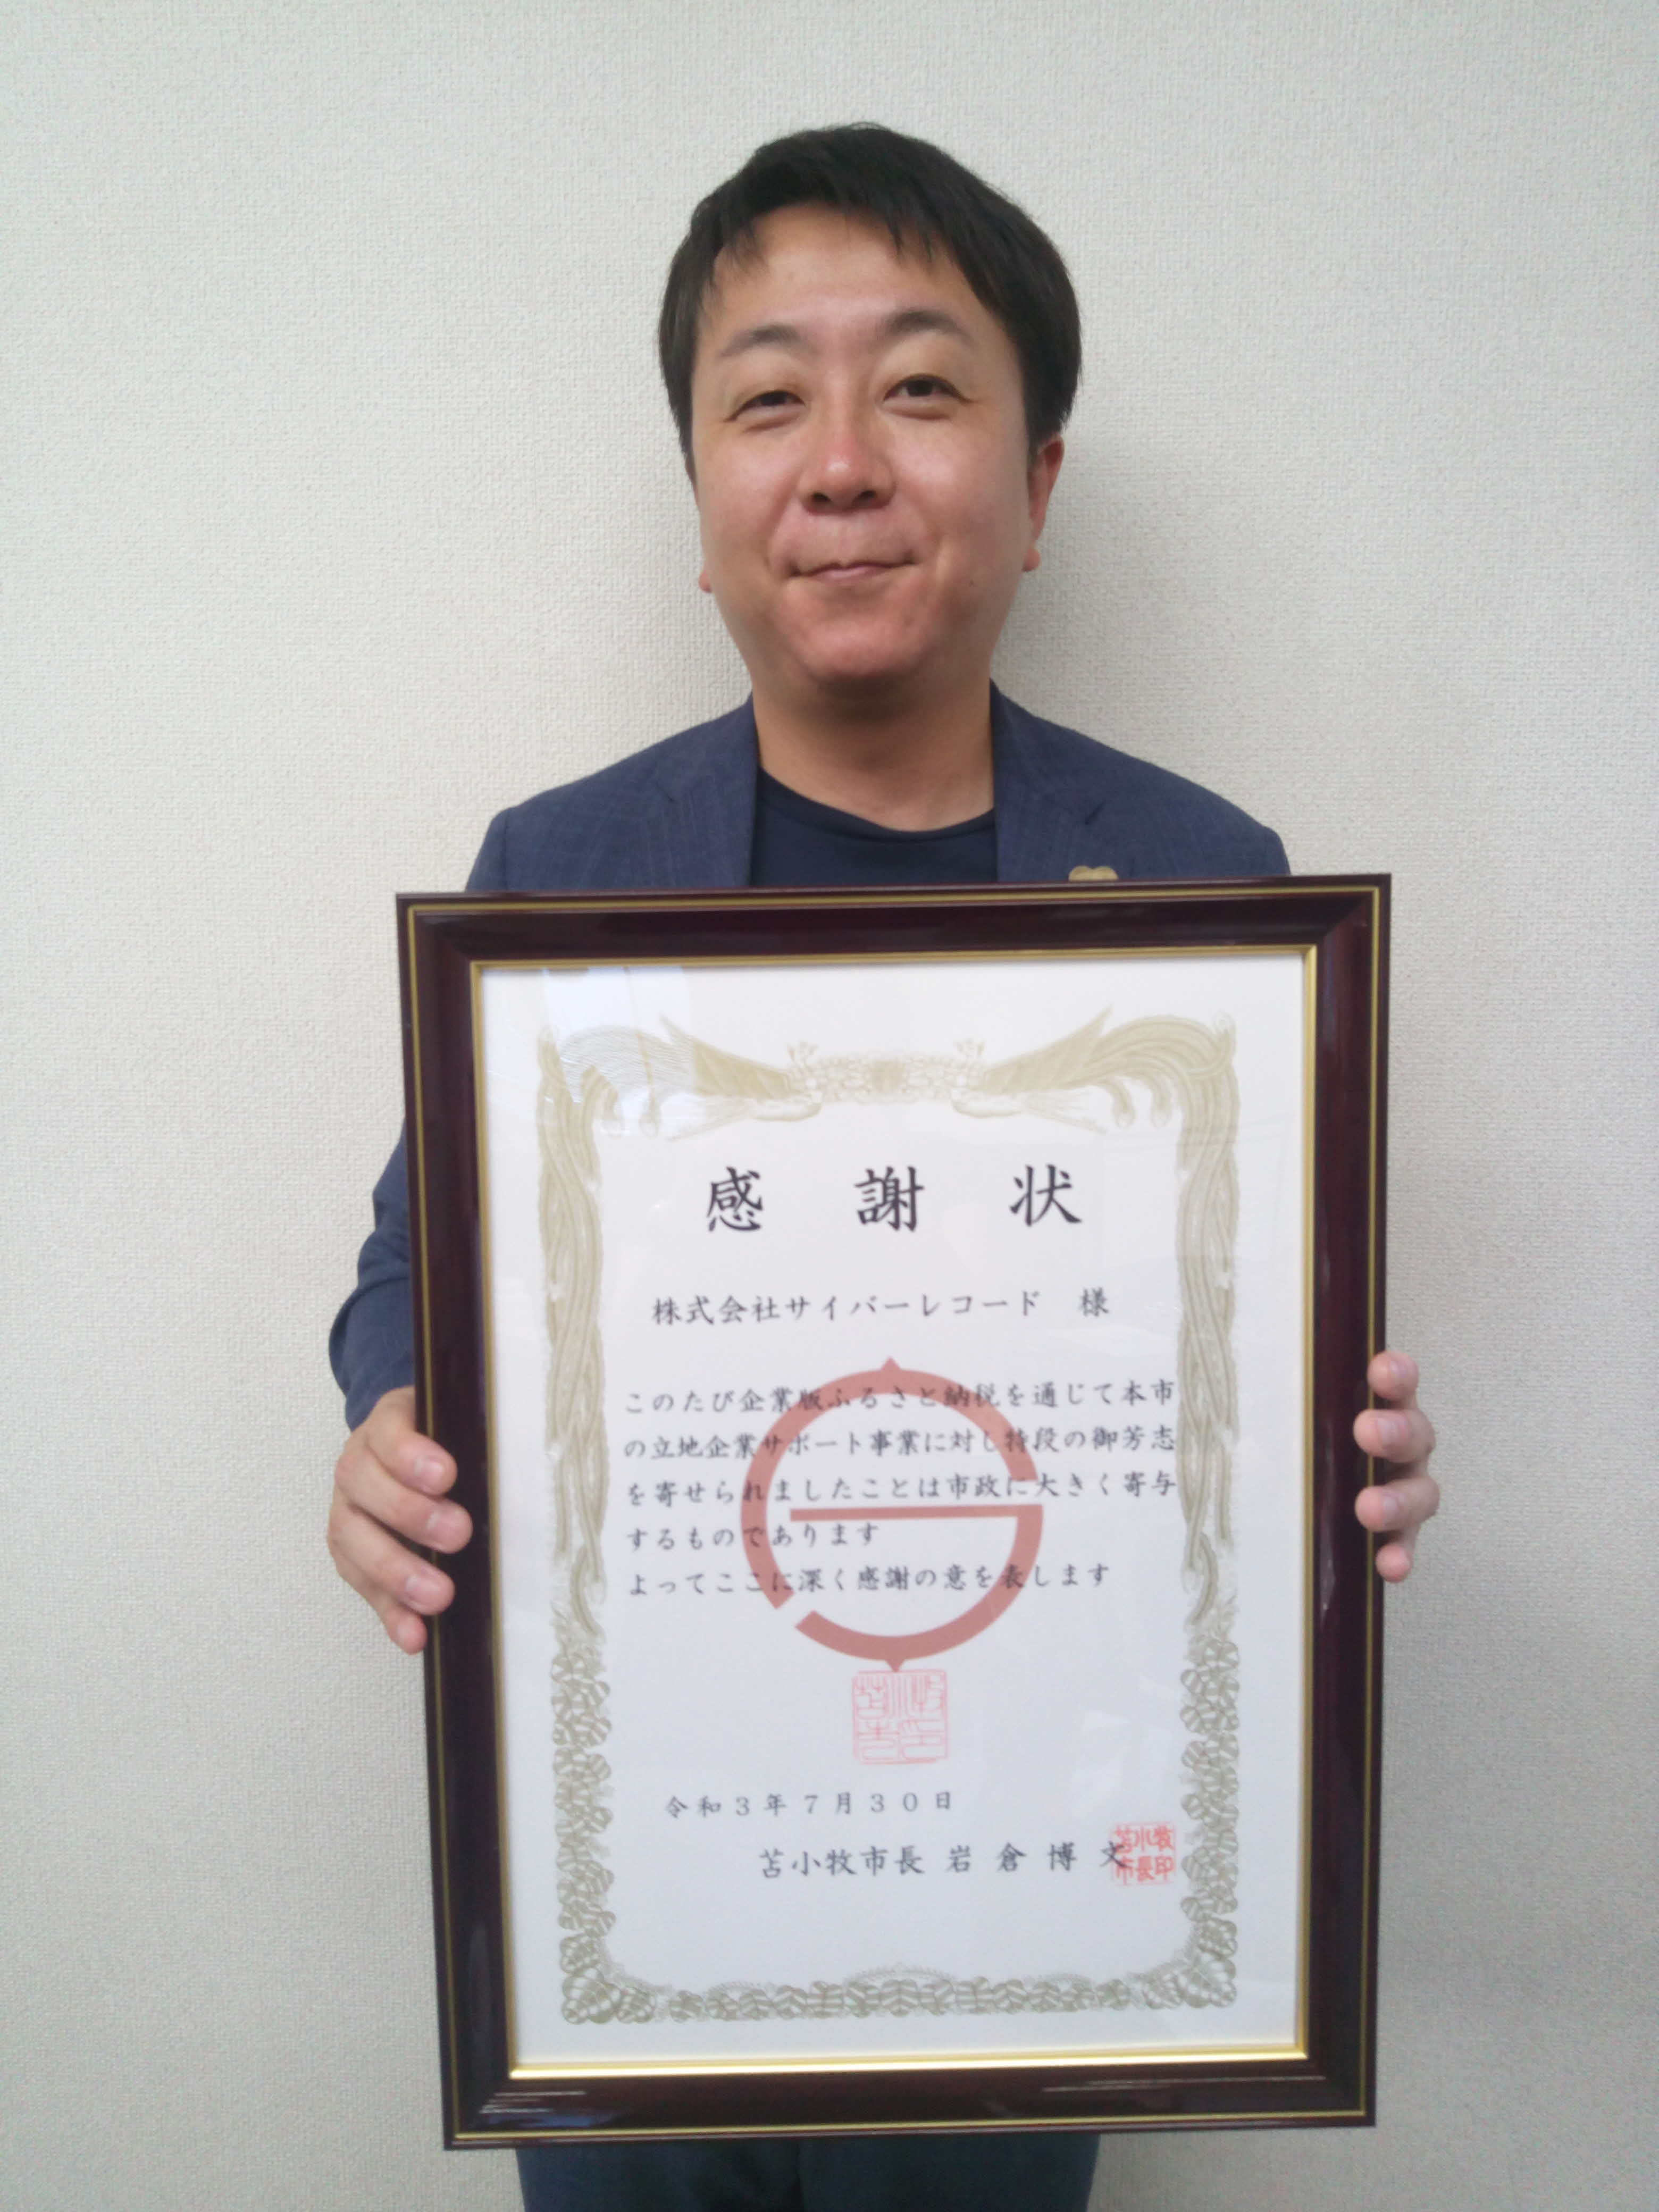 感謝状
株式会社サイバーレコード 様
このたび企業版ふるさと納税を通じて本市
の立地企業サポート事業に対し特段の御芳志
を寄せられましたことは市政に大きく寄与
するものであります
よってここに深く感謝の意を表します
令和３年７月３０日
苫小牧市長 岩倉博文
苫小牧
市長印